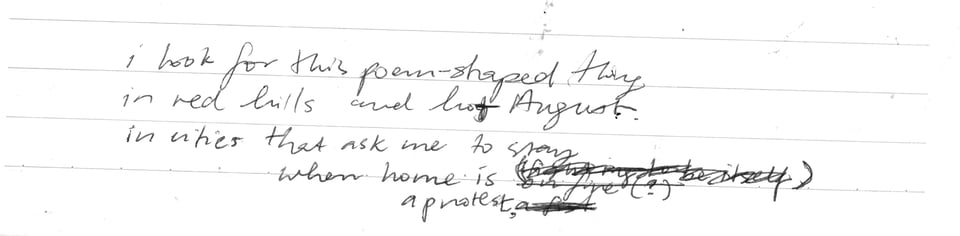 i look for this poem-shaped thing
in red hills and hot August.
in cities that ask me to stay
when home is to be itself)
on fire (?)
a protest,